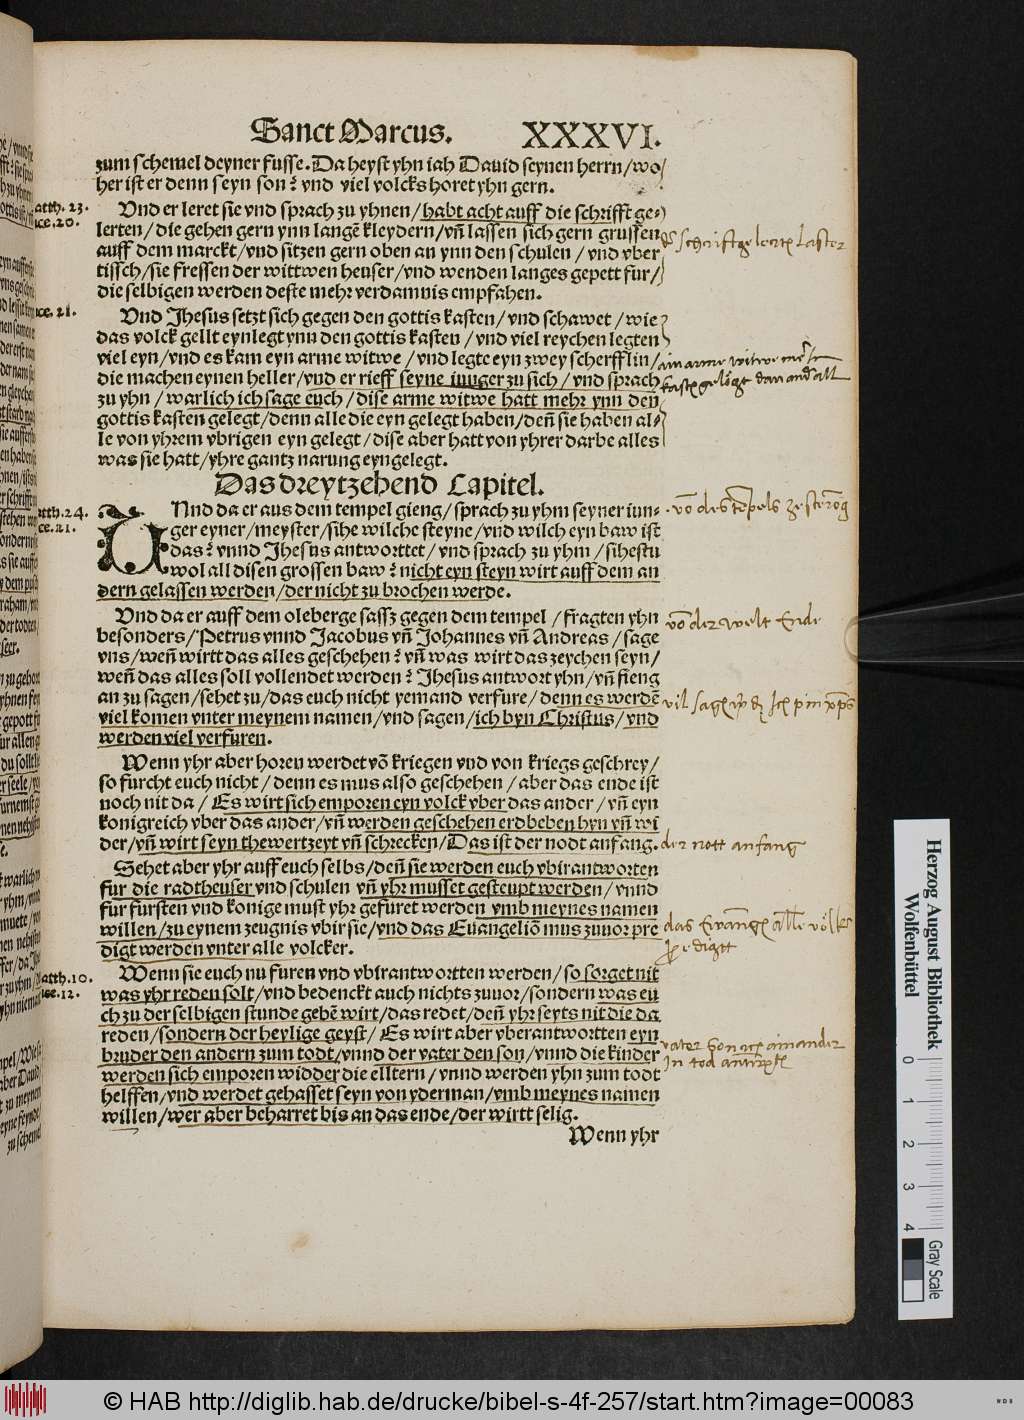 Sanct Marcus. XXXVI.
zum schemel deyner fusse. Da heyst yhn iah David seynen herrn/wo/
her ist er denn seyn son? vnd viel volcks horet yhn gern.
Matth. 23.
Luce. 20.
Vnd er leret sie vnd sprach zu yhnen/habt acht auff die schrifft ge/
lerten/die gehen gern ynn langẽ kleydern/vñ lassen sich gern grussen
auff dem marckt/vnd sitzen gern oben an ynn den schulen/vnd vber
tissch/sie fressen der wittwen heuser/vnd wenden langes gepett fur/
die selbigen werden deste mehr verdamnis empfahen.
schriftgelerten laster
Luce. 21.
Vnd Jhesus setzt sich gegen den gottis kasten/vnd schawet/wie
das volck gellt eynlegt ynn den gottis kasten/vnd viel reychen legten
viel eyn/vnd es kam eyn arme witwe/vnd legte eyn zwey scherfflin/
die machen eynen heller/vnd er rieff seyne iunger zu sich/vnd sprach
zu yhn/warlich ich sage euch/dise arme witwe hatt mehr ynn den
gottis kasten gelegt/denn alle die eyn gelegt haben/deñ sie haben al/
le von yhrem vbrigen eyn gelegt/dise aber hatt von yhrer darbe alles
was sie hatt/yhre gantz narung eyngelegt.
ain arme witwe mer in
kasten gelögt dan and all
Das dreytzehend Capitel.
Matth. 24.
Luce. 21.
VNnd da er aus dem tempel gieng/sprach zu yhm seyner iun-
ger eyner/meyster/sihe wilche steyne/vnd wilch eyn baw ist
das? vnnd Jhesus antworttet/vnd sprach zu yhm/sihestu
wol all disen grossen baw? nicht eyn steyn wirt auff dem an
dern gelassen werden/der nicht zu brochen werde.
võ des tẽpels zestörũg
Vnd da er auff dem oleberge sassz gegen dem tempel/fragten yhn
besonders/Petrus vnnd Jacobus vñ Johannes vñ Andreas/sage
vns/weñ wirtt das alles geschehen? vñ was wirt das zeychen seyn/
weñ das alles soll vollendet werden? Jhesus antwort yhn/vñ fieng
an zu sagen/sehet zu/das euch nicht yemand verfure/denn es werdẽ
viel komen vnter meynem namen/vnd sagen/ich byn Christus/vnd
werden viel verfuren.
võ der welt Ende
vil sagẽ
Wenn yhr aber horen werdet võ kriegen vnd von kriegs geschrey/
so furcht euch nicht/denn es mus also geschehen/aber das ende ist
noch nit da/Es wirt sich emporen eyn volck vber das ander/vñ eyn
konigreich vber das ander/vñ werden geschehen erdbeben hyn vñ wi
der/vñ wirt seyn thewertzeyt vñ schrecken/Das ist der nodt anfang.
der nott anfang
Sehet aber yhr auff euch selbs/deñ sie werden euch vbirantworten
fur die radtheuser vnd schulen vñ yhr musset gesteupt werden/vnnd
fur fursten vnd konige must yhr gefuret werden vmb meynes namen
willen/zu eynem zeugnis vbir sie/vnd das Euangeliõ mus zuuor pre
digt werden vnter alle volcker.
das Ewangẽ alle völker
predigtt
Matth. 10.
Luce. 12.
Wenn sie euch nu furen vnd vbirantwortten werden/so sorget nit
was yhr reden solt/vnd bedenckt auch nichts zuuor/sondern was eu
ch zu der selbigen stunde gebẽ wirt/das redet/deñ yhr seyts nit die da
reden/sondern der heylige geyst/Es wirt aber vberantwortten eyn
bruder den andern zum todt/vnnd der vater den son/vnnd die kinder
werden sich emporen widder die elltern/vnnd werden yhn zum todt
helffen/vnd werdet gehasset seyn von yderman/vmb meynes namen
willen/wer aber beharret bis an das ende/der wirtt selig.
vater son ainander
in tod
Wenn yhr
Herzog August Bibliothek
Wolfenbüttel
0 1 2 3 4
Gray Scale
© HAB http://diglib.hab.de/drucke/bibel-s-4f-257/start.htm?image=00083